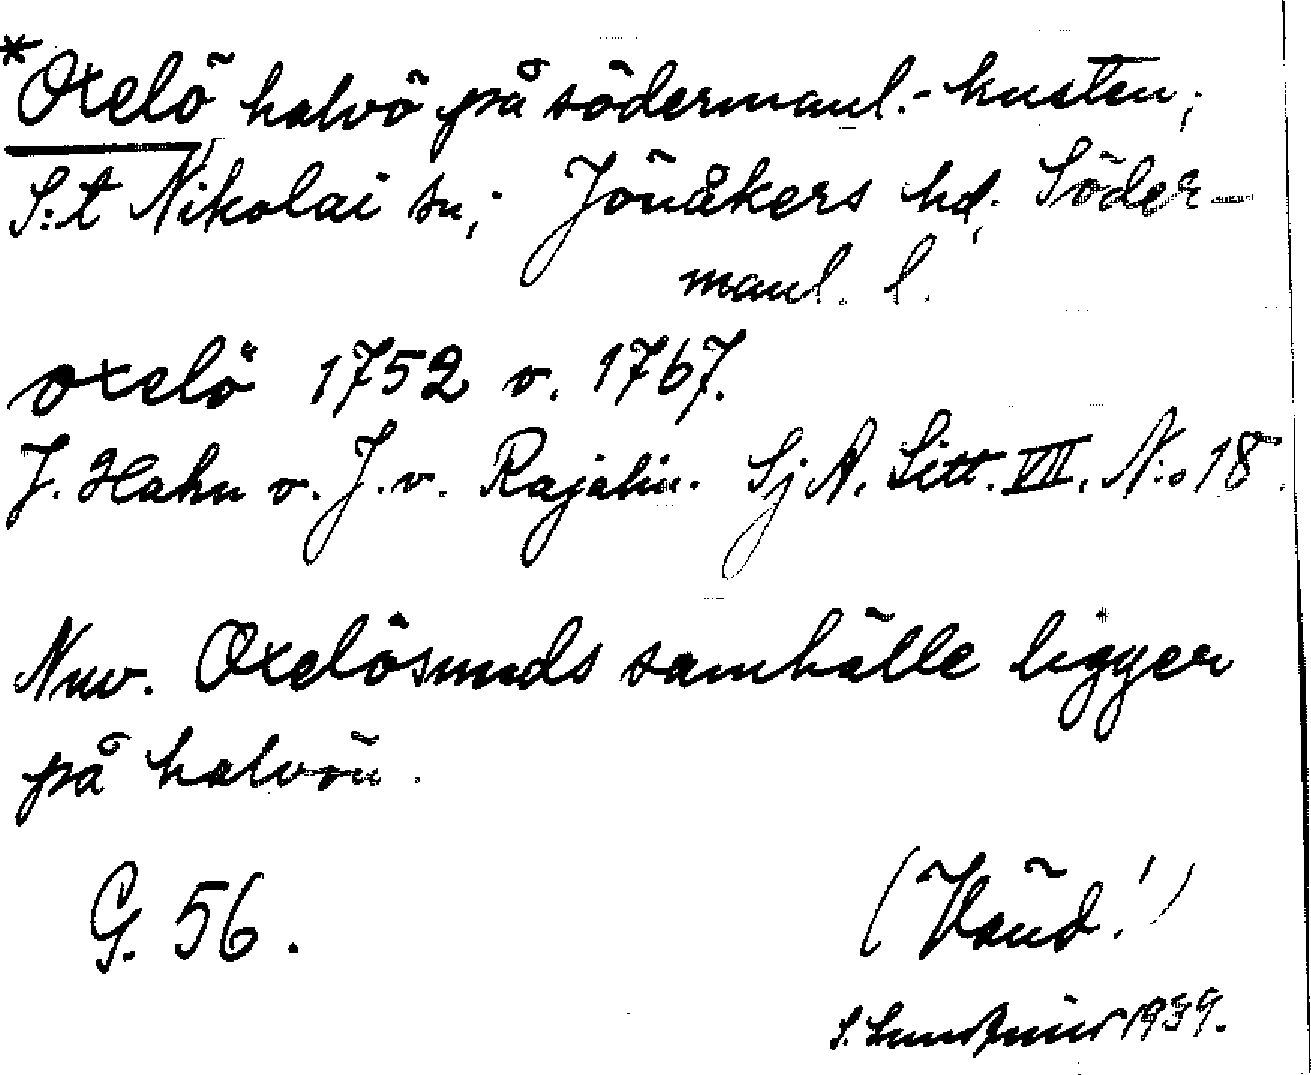 *Oxelö halvö på södermanl.-kusten;
S:t Nikolai sn; Jönåkers hd; Söder-
manl. l.
oxelö 1752 o. 1767.
J. Hahn o. J. v. Rajalin. SjA. Litt. VII. N:o 18.
Nuv. Oxelösunds samhälle ligger
på halvön.
G. 56.
(Vänd!)
S. 1939.